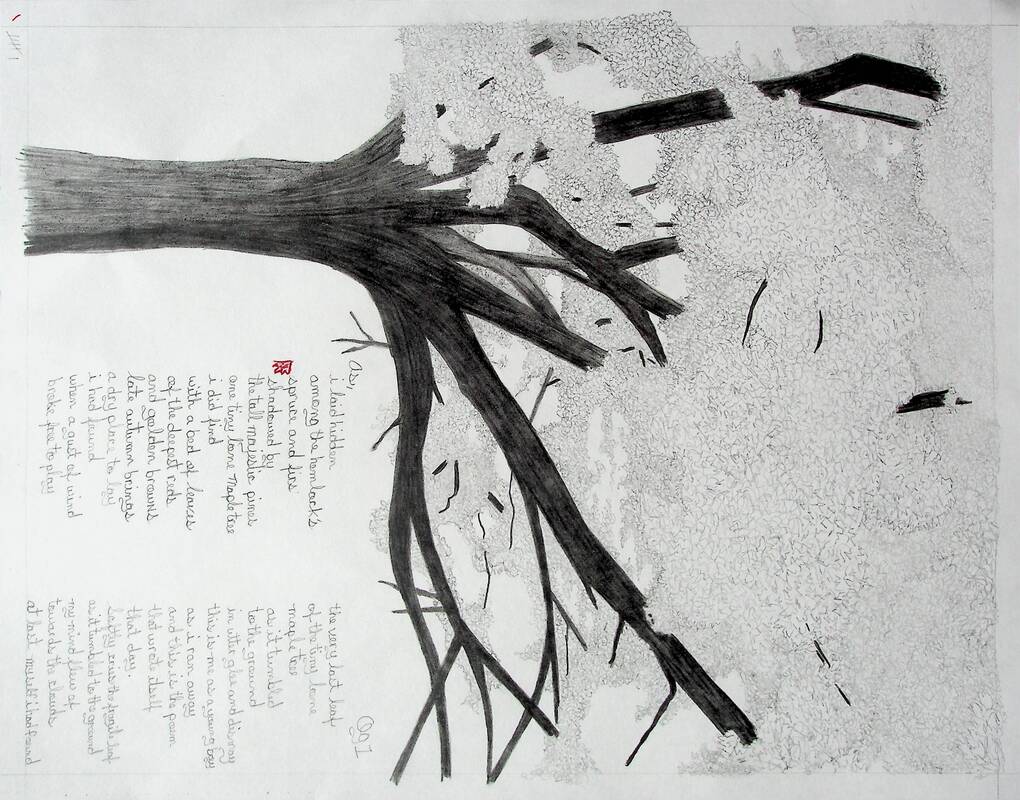 As,
i laid hidden
among the hemlocks
spruce and firs
shadowed by
the tall majestic pines
one tiny lone maple tree
i did find
with a bed of leaves
of the deepest reds
and golden browns
late autumn brings
a dry place to lay
i had found
when a gust of wind
broke free to play
the very last leaf
of the tiny lone
maple tree
as it tumbled
to the ground
in utter glee and dismay
this is me as a young boy
as i ran away
and this is the poem
that wrote itself
that day.
softly cries the fragile leaf
as it tumbled to the ground
my mind flew of
towards the clouds
at last myself i had found